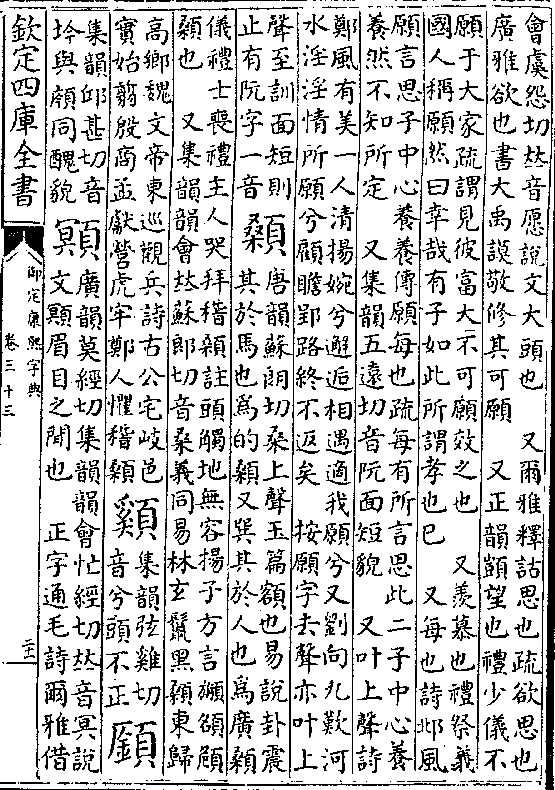 會虞怨切𠀤音愿說文大頭也　又爾雅釋詁思也疏欲思也
廣雅欲也書大禹謨敬修其可願　又正韻顗望也禮少儀不
願于大家疏謂見彼富大不可願效之也　又羨慕也禮祭義
國人稱願然曰幸哉有子如此所謂孝也已　又每也詩邶風
願言思子中心養養傳願每也疏每有所言思此二子中心養
養然不知所定　又集韻五遠切音阮面短貌　又叶上聲詩
鄭風有美一人清揚婉兮邂逅相遇適我願兮又劉向九歎河
水淫淫情所願兮顧瞻郢路終不返矣　按願字去聲亦叶上
聲至訓面短則
止有阮字一音
顙
唐韻蘇朗切桑上聲玉篇額也易說卦震
其於馬也爲的顙又巽其於人也爲廣顙
儀禮士喪禮主人哭拜稽顙註頭觸地無容揚子方言䪼頟顔
顙也　又集韻韻會𠀤蘇郎切音桑義同易林玄鬣黑顙東歸
高鄉魏文帝東巡觀兵詩古公宅岐邑
實始翦殷商孟獻營虎牢鄭人懼稽顙
䫔
集韻弦雞切
音兮頭不正
顩
集韻邱甚切音
坅與頗同醜貌
顭
廣韻莫經切集韻韻會忙經切𠀤音冥說
文顭眉目之閒也　正字通毛詩爾雅借
欽定四庫全書
御定康熙字典
卷三十三